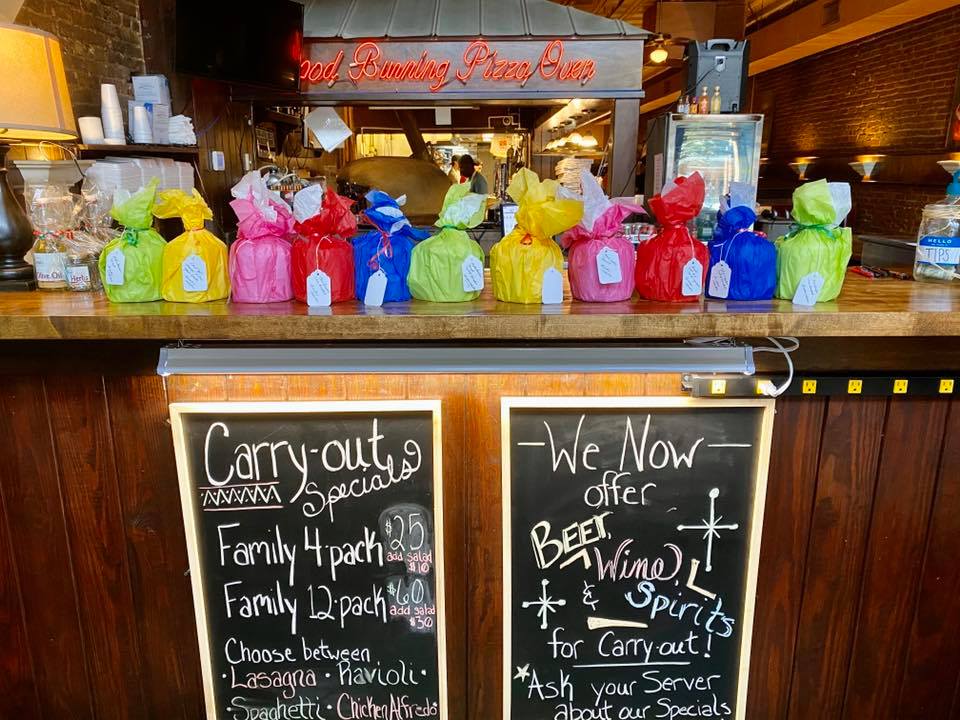 ood Burning Pizza Oven
HELLO
TIPS
Carry-out
Specials
Family 4·pack $25
add salad
$10
Family 12·pack $60
add salad
$30
Choose between
·Lasagna·Ravioli·
·Spaghetti·Chicken Alfredo·
-We Now-
offer
BEER,
Wine,
& Spirits
for Carry-out!
*Ask your Server
about our Specials